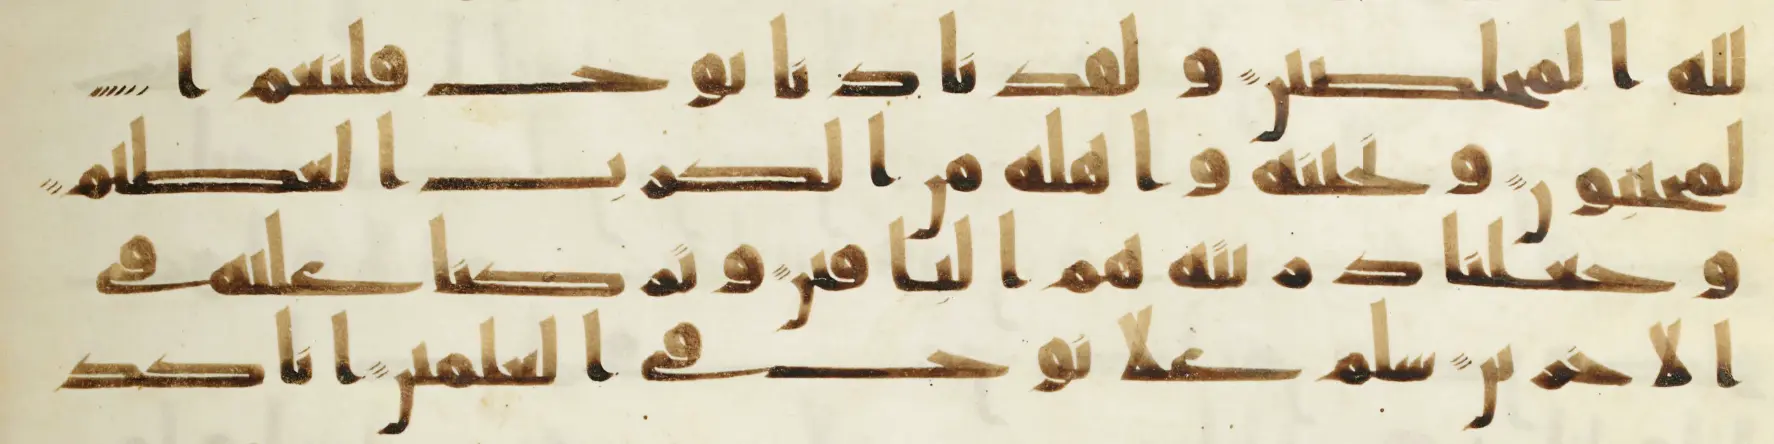 لله المخلصين ولقد نادانا نوح فلنعم ا
لمجيبون ونجينه وأهله من الكرب العظيم
وجعلنا ذريته هم الباقين وتركنا عليه في
الاخرين سلم على نوح في العلمين انا كذ